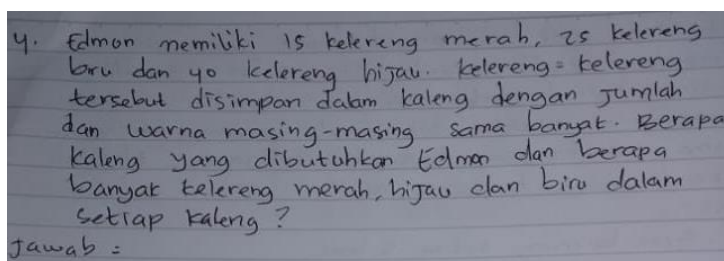 4. Edmon memiliki 15 kelereng merah, 25 kelereng
biru dan 40 kelereng hijau. kelereng = kelereng
tersebut disimpan dalam kaleng dengan Jumlah
dan warna masing-masing sama banyak. Berapa
kaleng yang dibutuhkan Edmon dan berapa
banyak kelereng merah, hijau dan biru dalam
setiap kaleng?
Jawab =